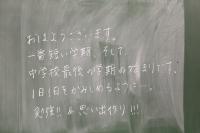 おはようございます。
一番短い学期、そして、
中学校最後の学期の始まりです。
1日1日をかみしめるように…。
勉強!! & 思い出作り!!!